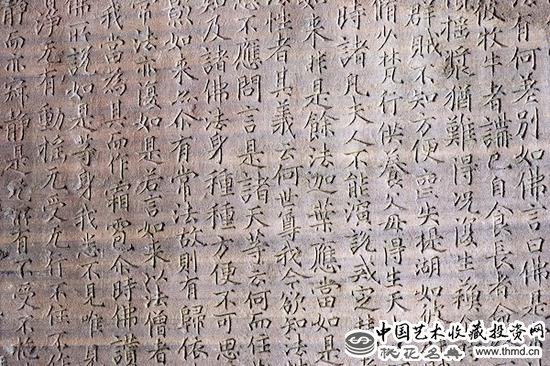 法有何差別如佛言曰佛是
彼牧牛者讃已自食長者
搖漿猶難得況復生
群賊不知方便亞失提湖如彼
脩少梵行供養父母得生天
時諸凡夫人不能演說戒定
來非是餘法迦葉應當如是
性者其義云何世尊我今欲知法
不應問言是諸天等云何而任
如及諸佛法身種種方便不可思
歎如來尒有常法故則有歸依
常法亦復如是若言如來以法僧者
我當為其而作霜雹尒時佛讃
佛所說如是等身我悉不見唯身
淨无有動搖无受无行不住不作
靜而亦寂靜是有不受不施
中国艺术收藏投资网
www.thmd.cn